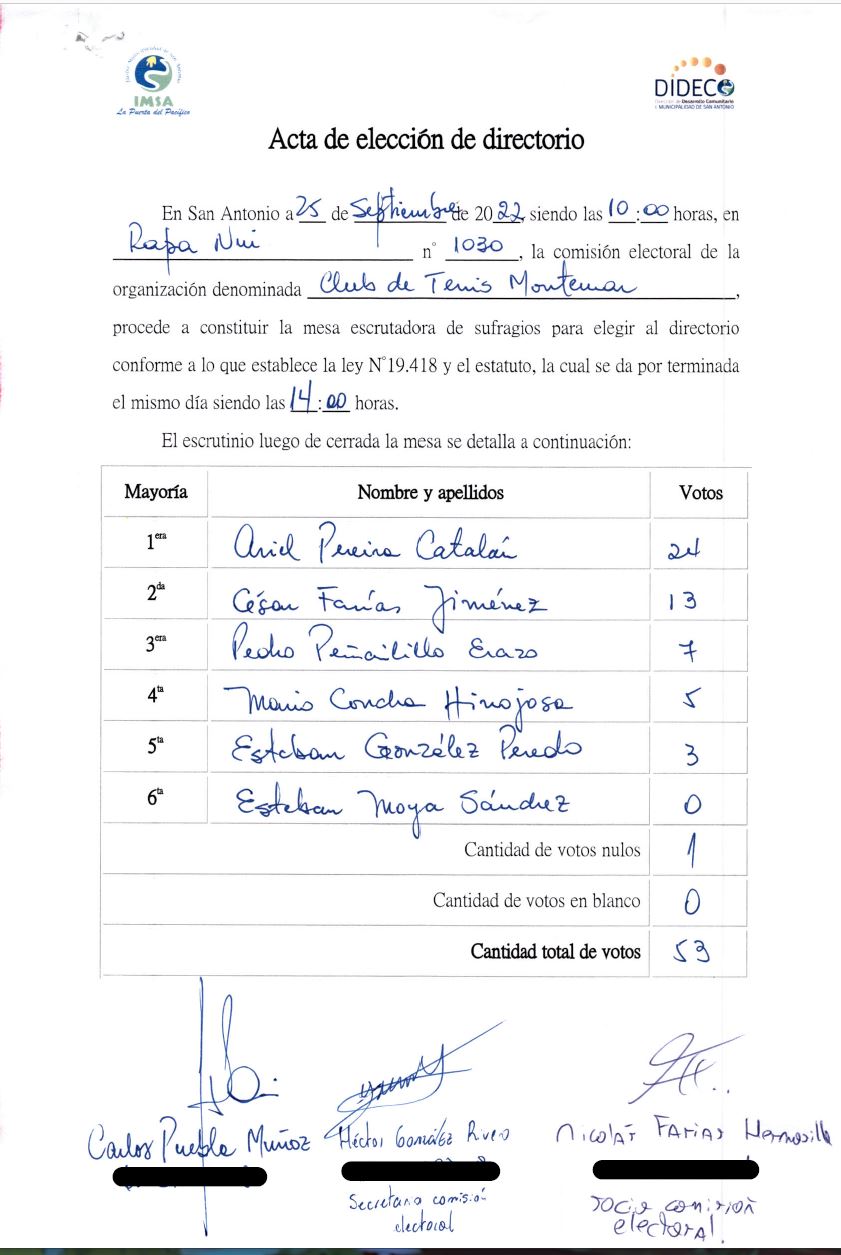 IMSA
La Puerta del Pacífico
DIDECO
Dirección de Desarrollo Comunitario
I. MUNICIPALIDAD DE SAN ANTONIO
Acta de elección de directorio
En San Antonio a 25 de Septiembre de 2022 siendo las 10:00 horas, en
Rapa Nui n° 1030, la comisión electoral de la
organización denominada Club de Tenis Montemar,
procede a constituir la mesa escrutadora de sufragios para elegir al directorio
conforme a lo que establece la ley N°19.418 y el estatuto, la cual se da por terminada
el mismo día siendo las 14:00 horas.
El escrutinio luego de cerrada la mesa se detalla a continuación:
Mayoría Nombre y apellidos Votos
1era Ariel Pereira Catalán 24
2da César Farías Jiménez 13
3era Pedro Peñailillo Erazo 7
4ta Mario Concha Hinojosa 5
5ta Esteban González Peredo 3
6ta Esteban Moya Sánchez 0
Cantidad de votos nulos 1
Cantidad de votos en blanco 0
Cantidad total de votos 53
Carlos Puebla Muñoz Héctor González Rivero Nicolás Farias Hermosilla
Secretario comisión socio comisión
electoral electoral.